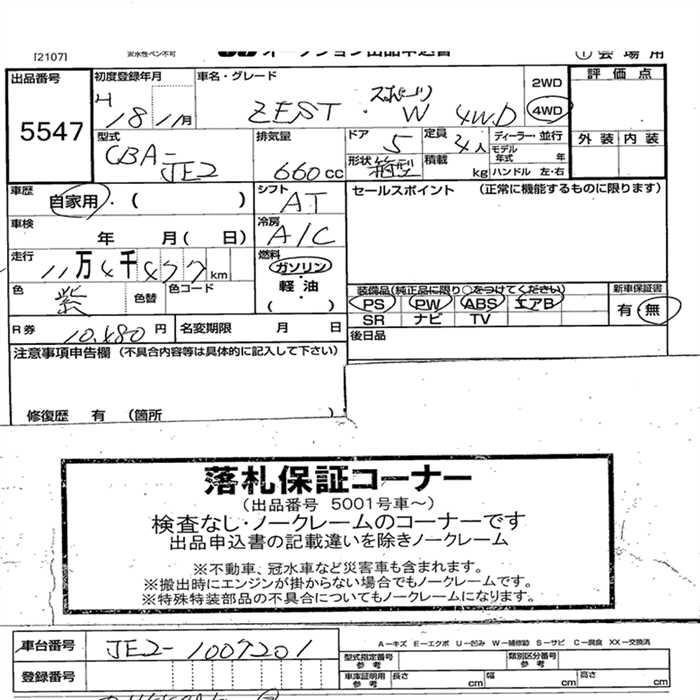 [2107]
油性ペン不可
オークション出品申込書
① 会場用
出品番号
5547
初度登録年月
H 18 年 11 月
車名・グレード
ZEST・スポーツ W 4WD
2WD
4WD
評価点
外装 内装
型式
CBA-JE2
排気量
660 cc
ドア
5
定員
4人
ディーラー・並行
モデル年式 年
形状
箱型
積載
kg
ハンドル 左・右
車歴
自家用・( )
シフト
AT
セールスポイント (正常に機能するものに限ります)
車検
年 月( 日)
冷房
A/C
走行
11万4千477km
燃料
ガソリン・
軽油・
( )
色
紫
色替
色コード
装備品(純正品に限り○をつけてください)
PS PW ABS エアB
SR ナビ TV
新車保証書
有・無
R券
10,480円
名変期限 月 日
後日品
注意事項申告欄(不具合内容等は具体的に記入して下さい)
修復歴 有 (箇所 )
落札保証コーナー
(出品番号 5001号車~)
検査なし・ノークレームのコーナーです
出品申込書の記載違いを除きノークレーム
※不動車、冠水車など災害車も含まれます。
※搬出時にエンジンが掛からない場合でもノークレームです。
※特殊特装部品の不具合についてもノークレームになります。
車台番号
JE2-1007201
A-キズ E-エクボ U-凹み W-補修跡 S-サビ C-腐食 XX-交換済
型式指定番号
参考
類別区分番号
参考
登録番号
車庫証明用
参考
長さ cm
幅 cm
高さ cm